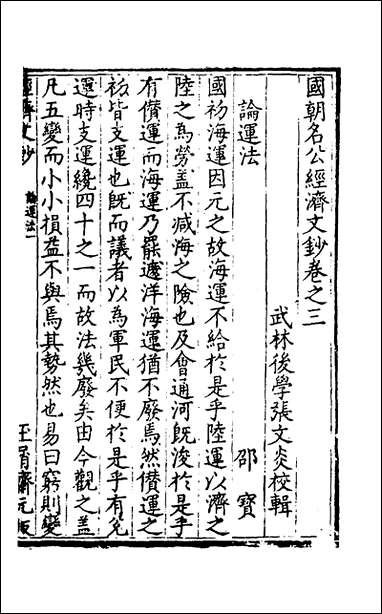 國朝名公經濟文鈔卷之三
武林後學張文炎校輯
論運法
邵寶
國初海運因元之故海運不給於是乎陸運以濟之
陸之為勞盖不減海之險也及會通河既浚於是乎
有儹運而海運乃罷遮洋海運猶不廢焉然儹運之
初皆支運也既而議者以為軍民不便於是乎有兌
運時支運纔四十之一而故法幾廢矣由今觀之盖
凡五變而小小損益不與焉其勢然也易曰窮則變
經濟文鈔
論運法一
玉屑齋